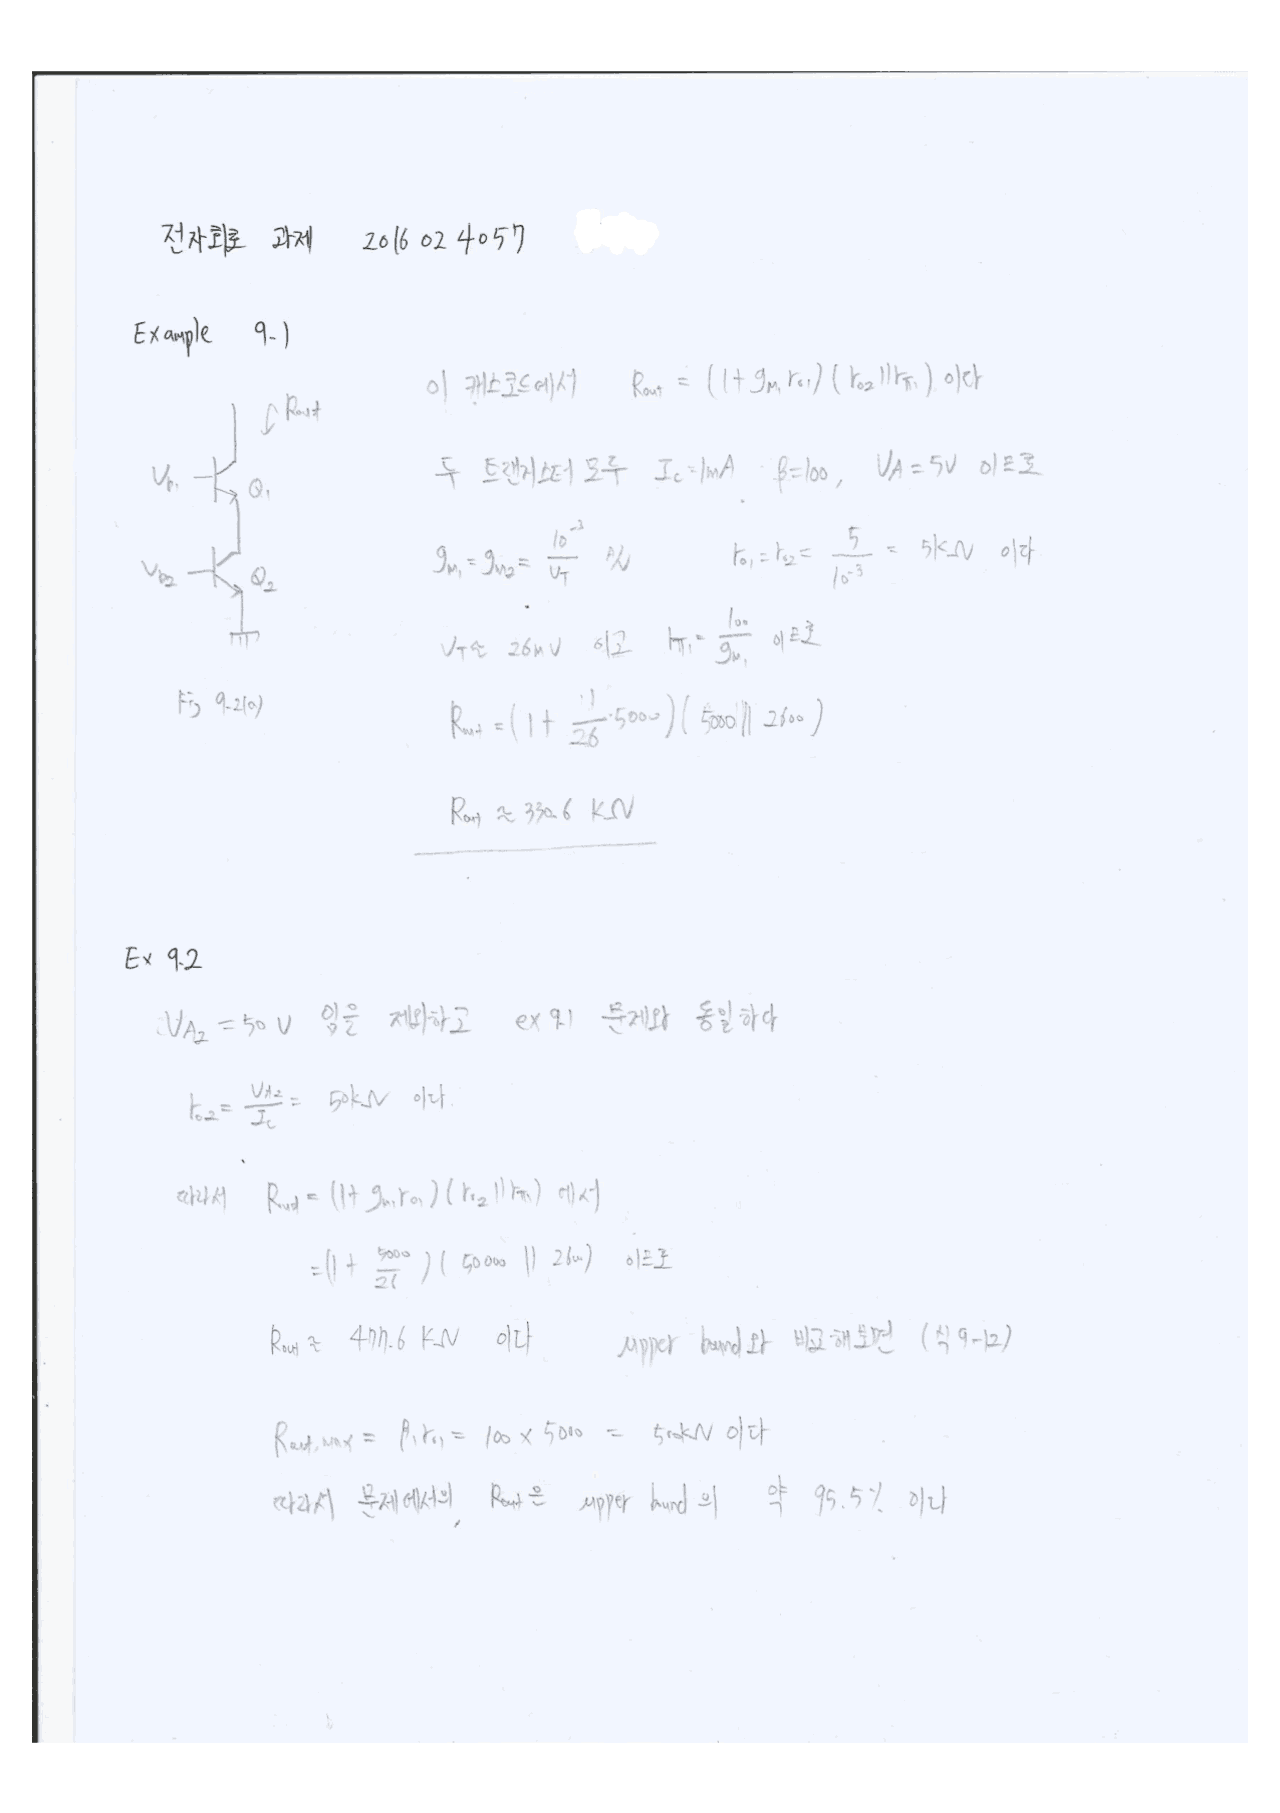 전자회로 과제 2016024057
Example 9-1
이 캐스코드에서 Rout = (1+gm1ro1)(ro2||rπ1) 이다
Rout
Vb1
Q1
두 트랜지스터 모두 Ic=1mA β=100, VA=5V 이므로
gm1=gm2= 10⁻³/VT A/V ro1=ro2= 5/10⁻³ = 5kΩ 이다
Vb2
Q2
VT는 26mV 이고 rπ1= 100/gm1 이므로
Fig 9-2(a)
Rout=(1+ 1/26·5000)(5000||2600)
Rout ≈ 330.6 KΩ
Ex 9.2
VA2=50V 임을 제외하고 ex 9.1 문제와 동일하다
ro2= VA2/Ic = 50kΩ 이다.
따라서 Rout=(1+gm1ro1)(ro2||rπ1) 에서
=(1+ 5000/26)(50000 || 2600) 이므로
Rout ≈ 477.6 KΩ 이다 upper bound와 비교해보면 (식 9-12)
Rout,max = β1ro1= 100 × 5000 = 500kΩ 이다
따라서 문제에서의 Rout은 upper bound의 약 95.5% 이다